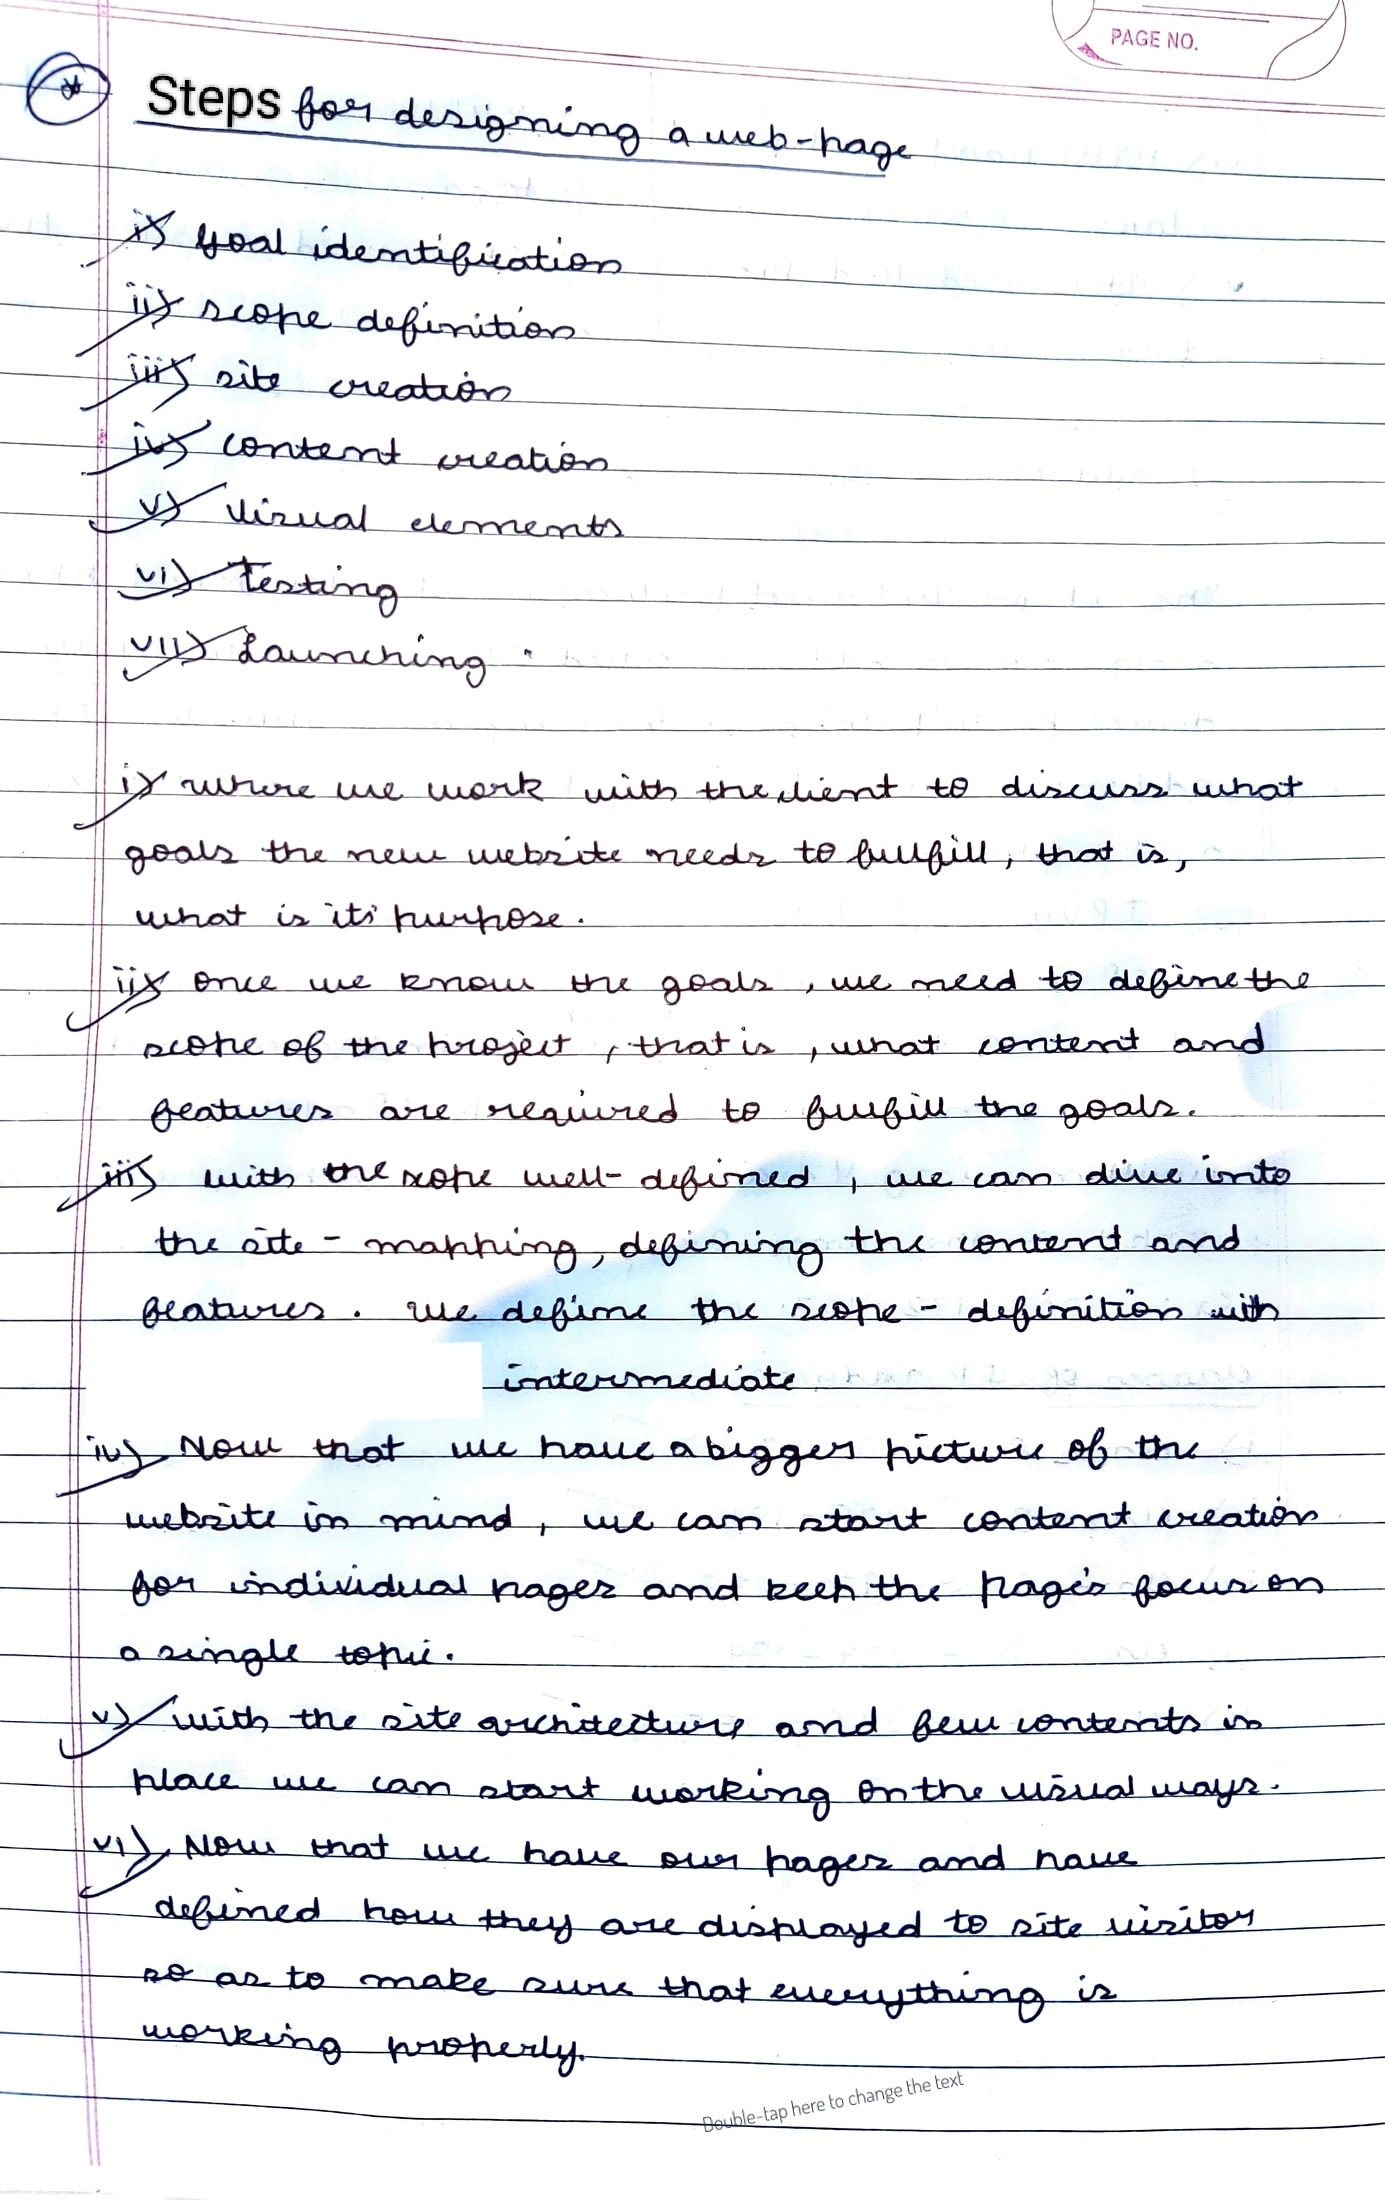 PAGE NO.
Steps for designing a web-page
i) Goal identification
ii) scope definition
iii) site creation
iv) content creation
v) Visual elements
vi) Testing
vii) Launching
i) where we work with the client to discuss what
goals the new website needs to fullfill, that is,
what is its' purpose.
ii) once we know the goals, we need to define the
scope of the project, that is, what content and
features are required to fullfill the goals.
iii) with the scope well-defined, we can dive into
the site-mapping, defining the content and
features. We define the scope-definition with
intermediate
iv) Now that we have a bigger picture of the
website in mind, we can start content creation
for individual pages and keep the page's focus on
a single topic.
v) with the site architecture and few contents in
place we can start working on the visual ways.
vi) Now that we have our pages and have
defined how they are displayed to site visitor
so as to make sure that everything is
working properly.
Double-tap here to change the text